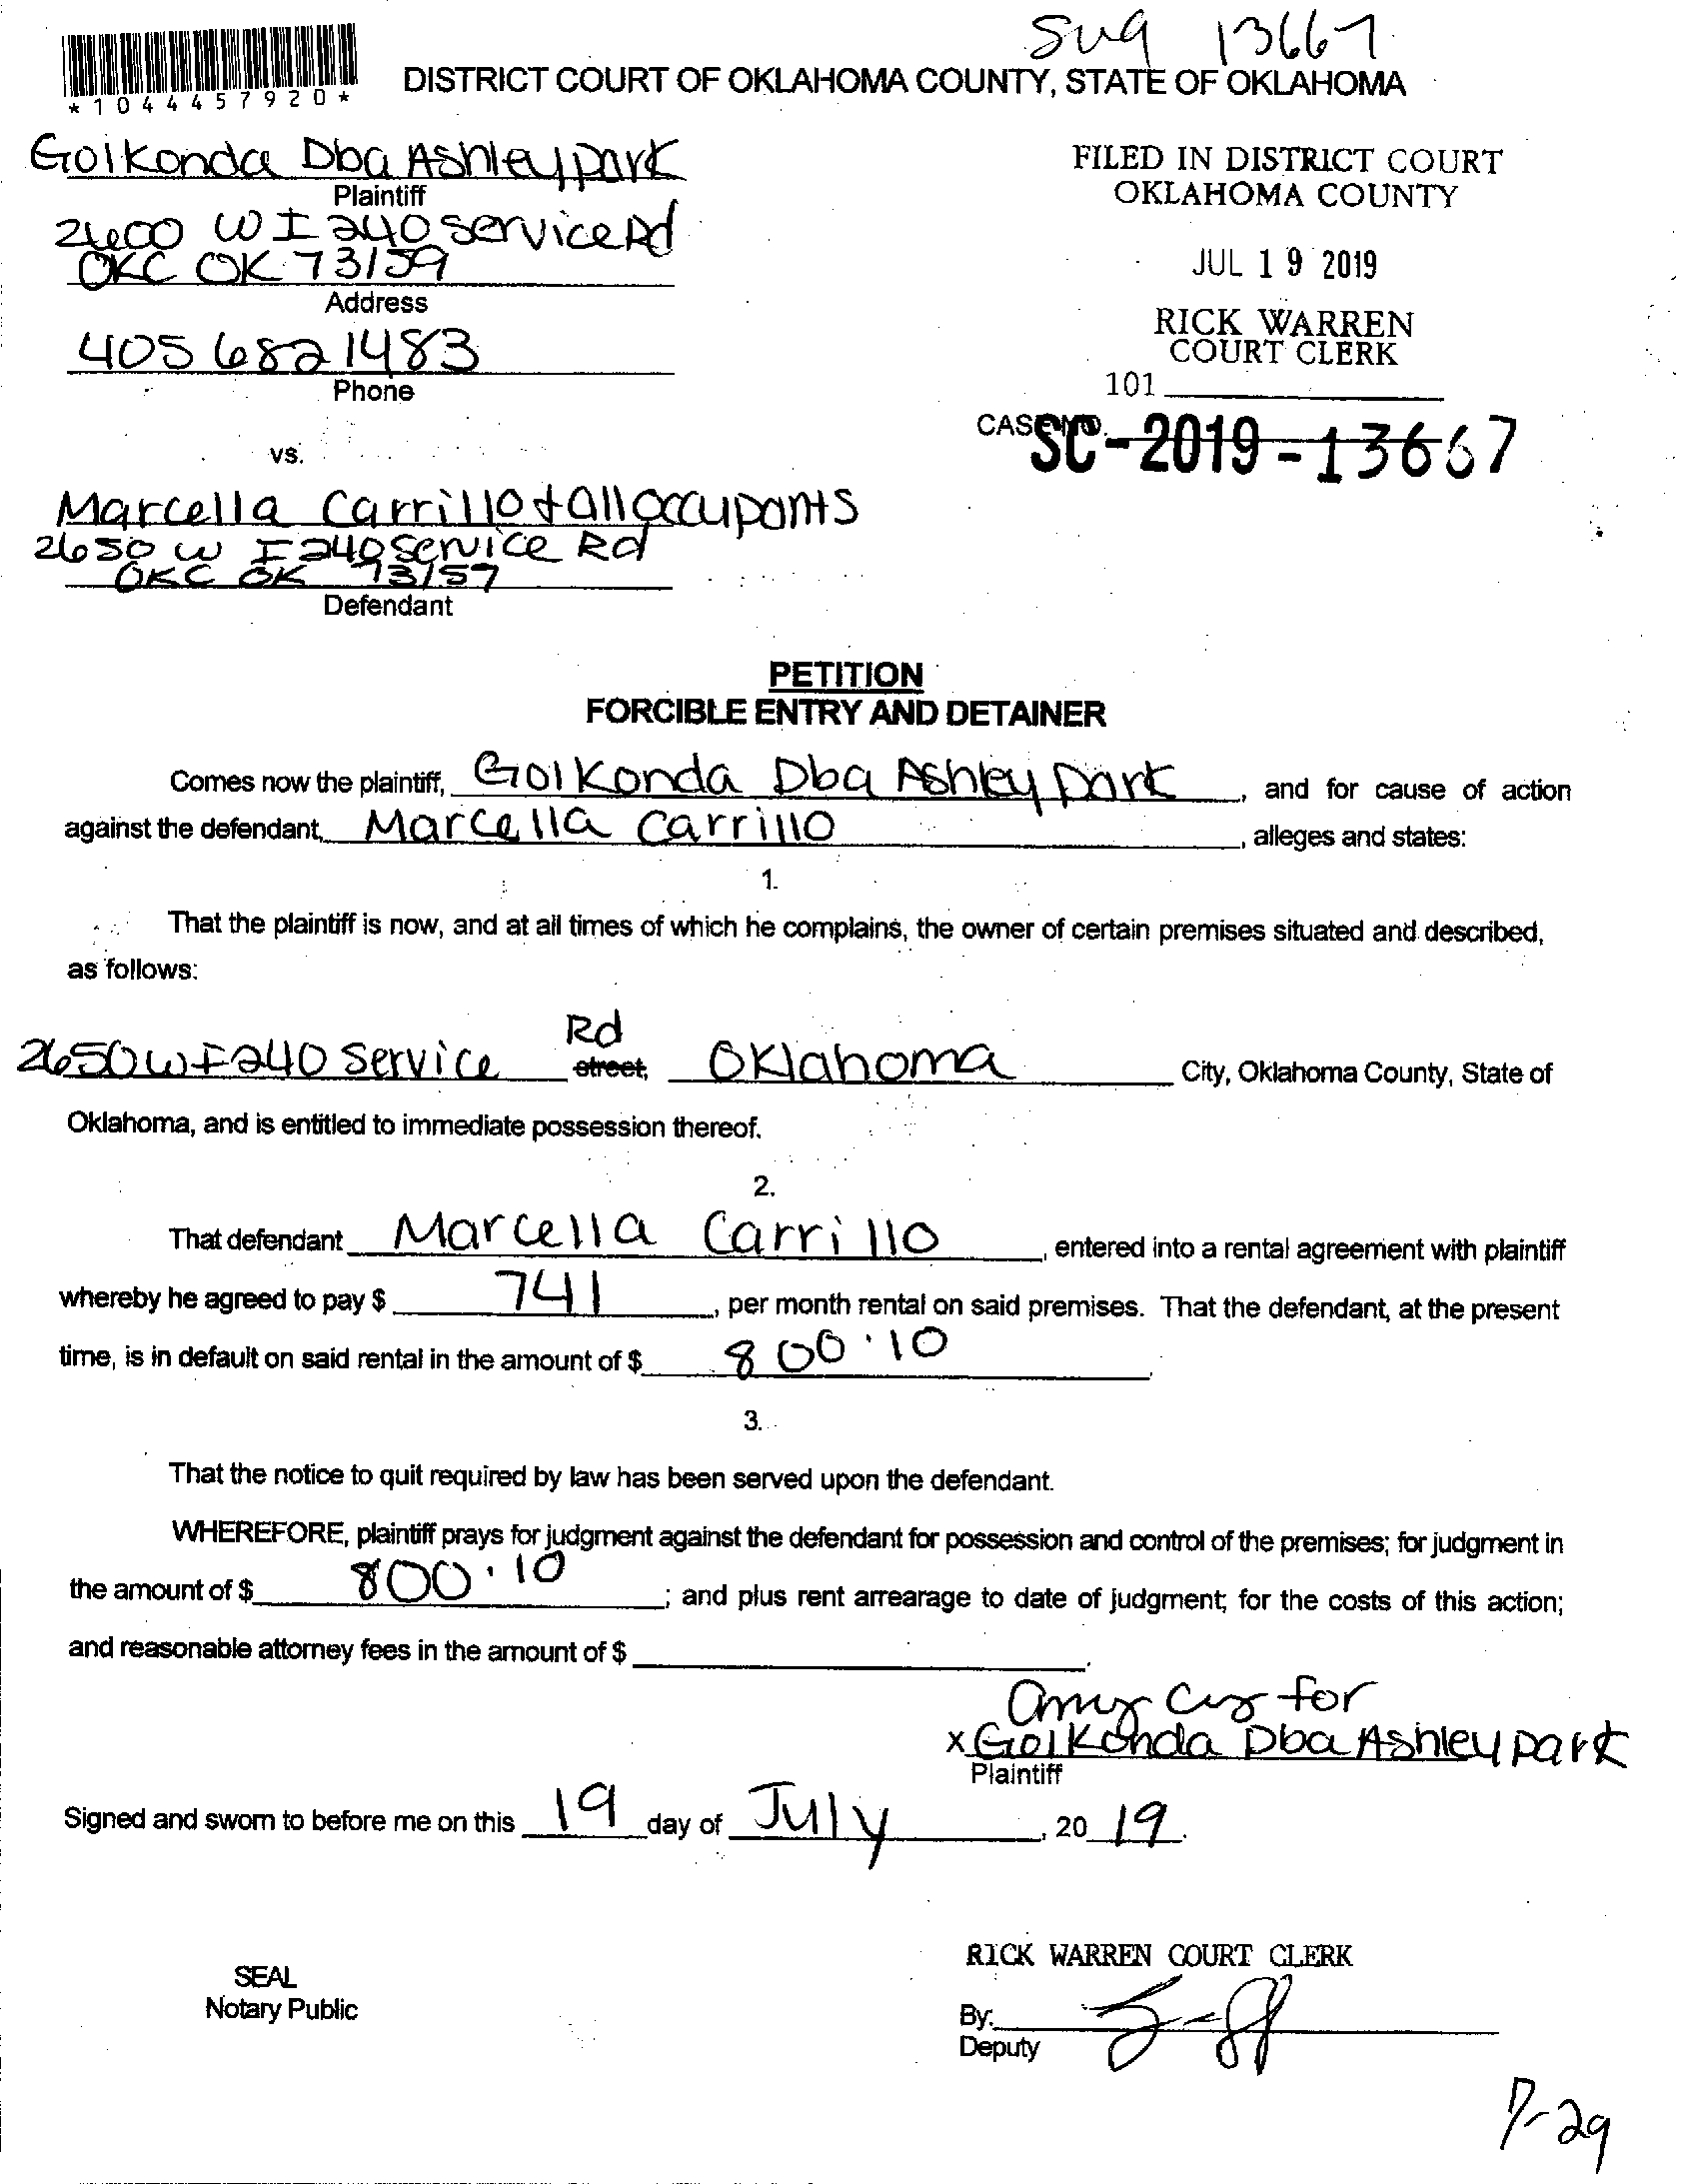 Sug 13667
*1044457920*
DISTRICT COURT OF OKLAHOMA COUNTY, STATE OF OKLAHOMA
Golkonda Dba Ashley park
Plaintiff
2600 W I 240 service Rd
OKC OK 73159
Address
405 682 1483
Phone
FILED IN DISTRICT COURT
OKLAHOMA COUNTY
JUL 19 2019
RICK WARREN
COURT CLERK
101
CASE NO. SC-2019-13667
vs.
Marcella Carrillo + all occupants
2650 W I 240 service Rd
OKC OK 73159
Defendant
PETITION
FORCIBLE ENTRY AND DETAINER
Comes now the plaintiff, Golkonda Dba Ashley Park, and for cause of action
against the defendant, Marcella Carrillo, alleges and states:
1.
That the plaintiff is now, and at all times of which he complains, the owner of certain premises situated and described,
as follows:
Rd
2650 W I 240 Service street, Oklahoma City, Oklahoma County, State of
Oklahoma, and is entitled to immediate possession thereof.
2.
That defendant Marcella Carrillo, entered into a rental agreement with plaintiff
whereby he agreed to pay $ 741, per month rental on said premises. That the defendant, at the present
time, is in default on said rental in the amount of $ 800.10.
3.
That the notice to quit required by law has been served upon the defendant.
WHEREFORE, plaintiff prays for judgment against the defendant for possession and control of the premises; for judgment in
the amount of $ 800.10; and plus rent arrearage to date of judgment; for the costs of this action;
and reasonable attorney fees in the amount of $ .
for
x Golkonda Dba Ashley park
Plaintiff
Signed and sworn to before me on this 19 day of July, 20 19.
RICK WARREN COURT CLERK
SEAL
Notary Public
By:
Deputy
7-29